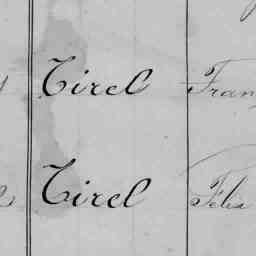 Tirel Fran
Tirel Félix